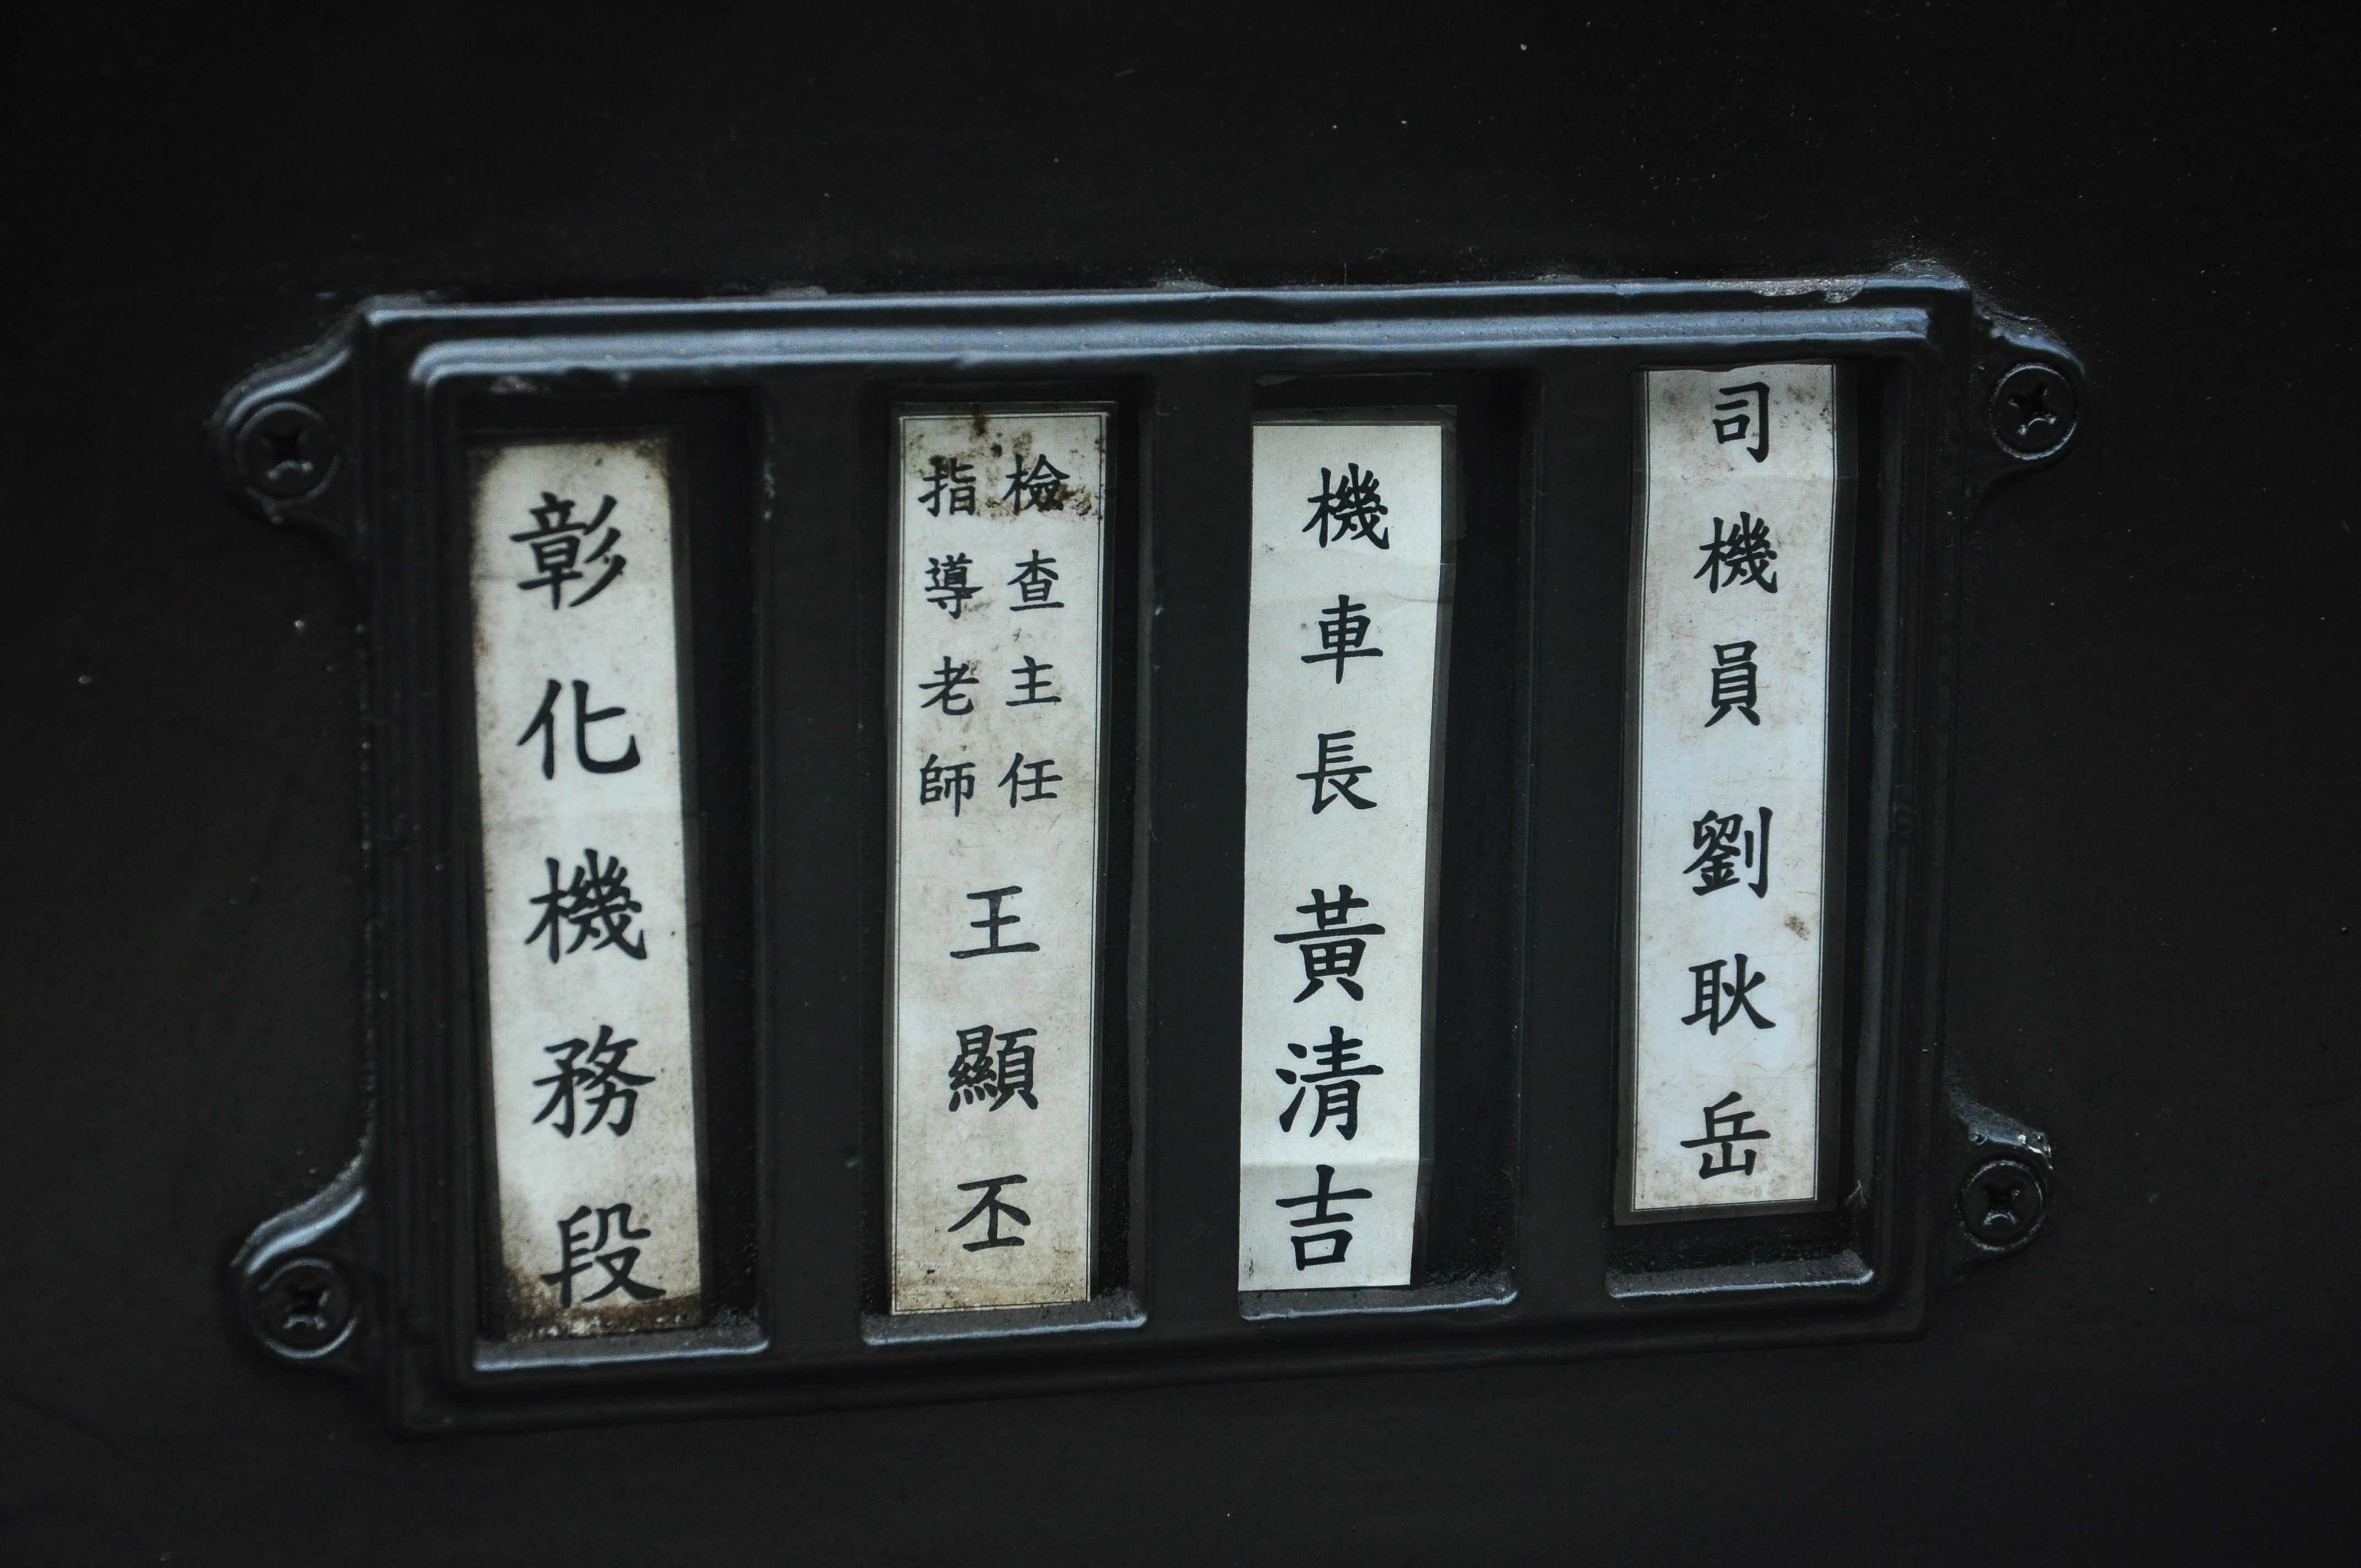 司機員劉耿岳
機車長黃清吉
檢查主任
指導老師
王顯丕
彰化機務段